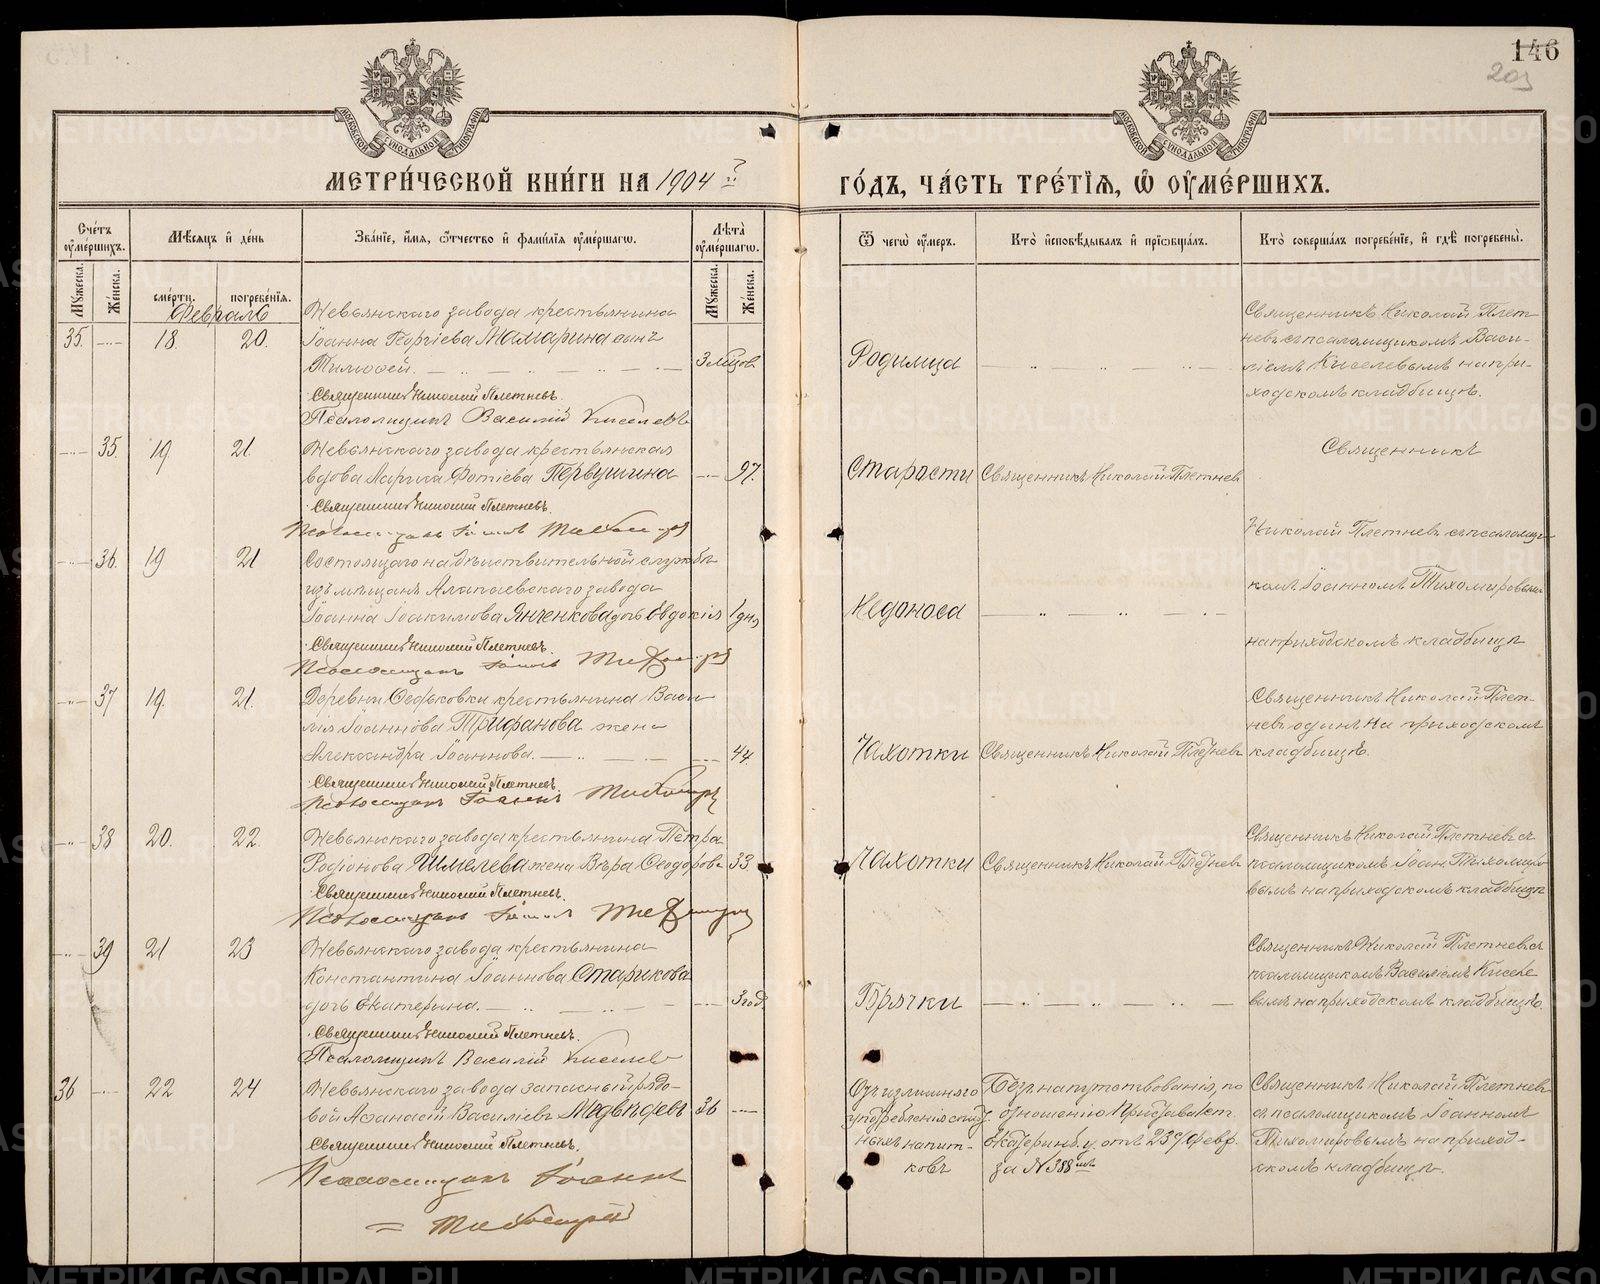 146
203
МОСКОВСКОЙ СѴНОДАЛЬНОЙ ТИПОГРАФІИ
МОСКОВСКОЙ СѴНОДАЛЬНОЙ ТИПОГРАФІИ
МЕТРИ́ЧЕСКОЙ КНИ́ГИ НА 1904 й
ГО́ДЪ, ЧА́СТЬ ТРЕ́ТІѦ, Ѽ ОУ҆МЕ́РШИХЪ.
Сче́тъ оу҆ме́ршихъ.
Мѣ́сяцъ и҆ де́нь
Зва́нїе, и҆́мя, ѻ҆́тчество и҆ фами́лїя оу҆ме́ршагѡ.
Лѣ́та оу҆ме́ршагѡ.
Ѿ чегѡ̀ оу҆́меръ.
Кто̀ и҆сповѣ́дывалъ и҆ прїѡбща́лъ.
Кто̀ соверша́лъ погребе́нїе, и҆ гдѣ̀ погребены̀.
Мꙋ́жеска.
Же́нска.
сме́рти.
погребе́нїя.
Мꙋ́жеска.
Же́нска.
Февраль
35. 18. 20.
Невьянскаго завода крестьянина
Іоанна Георгіева Мамарина сынъ
Тимофей.
3 мѣсцов
Священникъ Николай Плетневъ.
Псаломщикъ Василій Киселевъ
Родимца
Священникъ Николай Плет-
невъ съ псаломщикомъ Васи-
ліемъ Киселевымъ на при-
ходскомъ кладбищѣ.
35. 19 21.
Невьянскаго завода крестьянская
вдова Марѳа Фотіева Первушина
97.
Священникъ Николай Плетневъ.
Псаломщикъ Іоаннъ Тихомировъ
Старости
Священникъ Николай Плетнев
Священникъ
Николай Плетневъ съ псаломщи-
комъ Іоанномъ Тихомировымъ
на приходскомъ кладбищѣ
36. 19 21
Состоящаго на дѣйствительной службѣ
изъ мѣщанъ Алапаевскаго завода
Іоанна Іоакимова Янченкова дочь Евдокія
1 дня
Священникъ Николай Плетневъ.
Псаломщикъ Іоаннъ Тихомировъ
Недоноса
37 19. 21.
Деревни Федьковки крестьянина Васи-
лія Іоаннова Трифанова жена
Александра Іоаннова.
44
Священникъ Николай Плетневъ.
Псаломщикъ Іоаннъ Тихомировъ
Чахотки
Священникъ Николай Плетнев
Священникъ Николай Плет-
невъ одинъ на приходскомъ
кладбищѣ.
38 20. 22.
Невьянскаго завода крестьянина Петра
Родіонова Шмелева жена Вѣра Ѳеодорова
33.
Священникъ Николай Плетневъ.
Псаломщикъ Іоаннъ Тихомировъ
Чахотки
Священникъ Николай Плетнев
Священникъ Николай Плетневъ съ
псаломщикомъ Іоан. Тихомиро-
вымъ на приходскомъ кладбищѣ
39 21 23
Невьянскаго завода крестьянина
Константина Іоаннова Старикова
дочь Екатерина.
3 год.
Священникъ Николай Плетневъ.
Псаломщикъ Василій Киселевъ
Горячки
Священникъ Николай Плетневъ съ
псаломщикомъ Василіемъ Киселе-
вымъ на приходскомъ кладбищѣ.
36 22 24
Невьянскаго завода запасный рядо-
вой Аѳанасій Василіевъ Медвѣдевъ
36
Священникъ Николай Плетневъ.
Псаломщикъ Іоаннъ
Тихомировъ
Отъ излишняго
употребленія спирт-
ныхъ напит-
ковъ
Безъ напутствованія, по
отношенію Пристава 1 ст.
Екатеринб. у. отъ 23го февр.
за № 388мъ
Священникъ Николай Плетневъ
съ псаломщикомъ Іоанномъ
Тихомировымъ на приход-
скомъ кладбищѣ.
METRIKI.GASO-URAL.RU